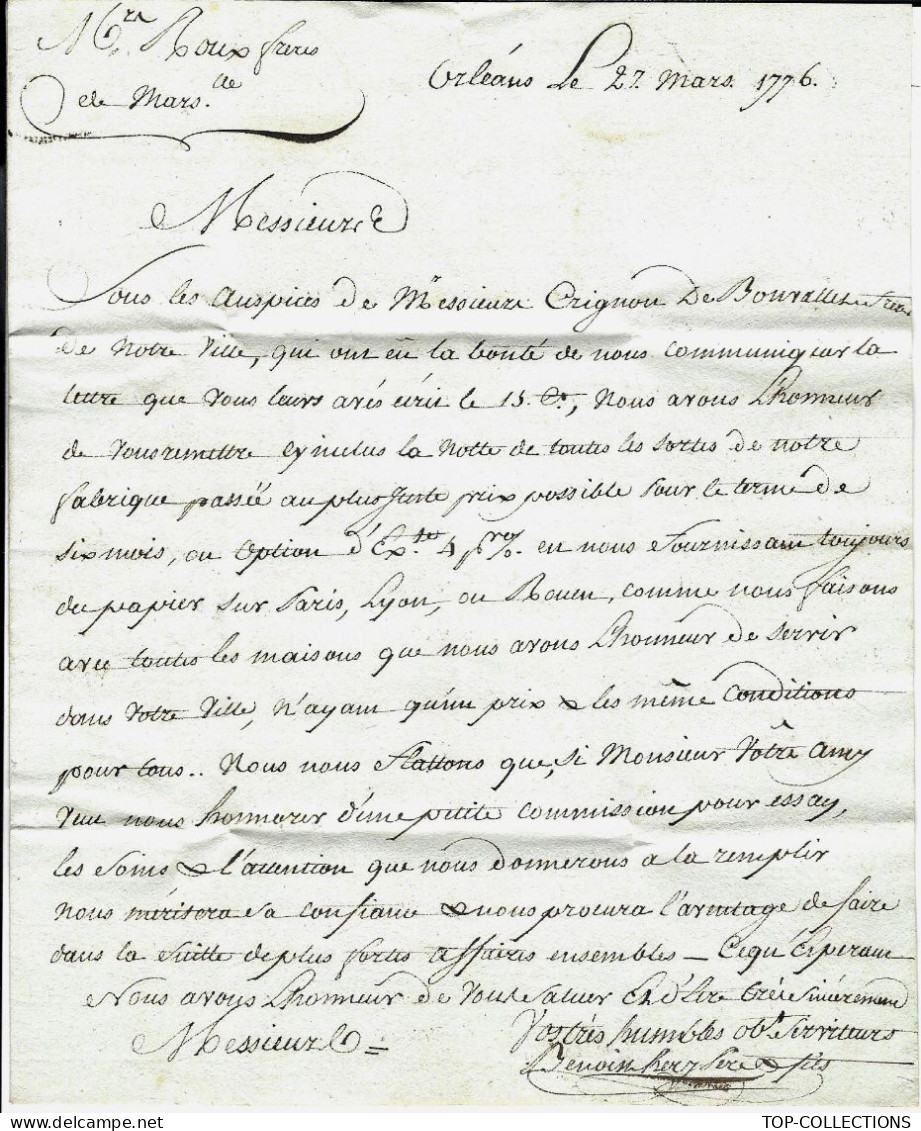 Mrs. Roux freres
de Mars.le
Orléans Le 27. Mars. 1776.
Messieurs
Sous les Auspices de Messieurs Crignon De Bonvallet freres
De Notre Ville, qui ont eü la bonté de nous communiquer la
lettre que Vous leurs avés écrit le 15. Ct., Nous avons L'honneur
de Vous remettre cy inclus la Notte de toutes les sortes de notre
fabrique passée au plus Juste prix possible pour le terme de
six mois, ou Option d'Ex.te 4 pr%. en nous Fournissant toujours
du papier sur Paris, Lyon, ou Rouen, comme nous faisons
avec toutes les maisons que nous avons L'honneur de servir
dans Votre Ville, N'ayant qu'un prix & les même Conditions
pour tous.. Nous nous Flattons que, si Monsieur Votre Amy
Veut nous honnorer d'une petite commission pour essay,
les Soins & l'attention que nous donnerons a la remplir
Nous méritera sa confiance & nous procura l'avantage de faire
dans la Suitte de plus fortes affaires ensembles _ Ce qu'Esperant
Nous avons L'honneur de Vous Saluer Et d'Etre trés Sincérement
Messieurs
Vos trés humbles obt. Serviteurs
Pere & fils
TOP-COLLECTIONS